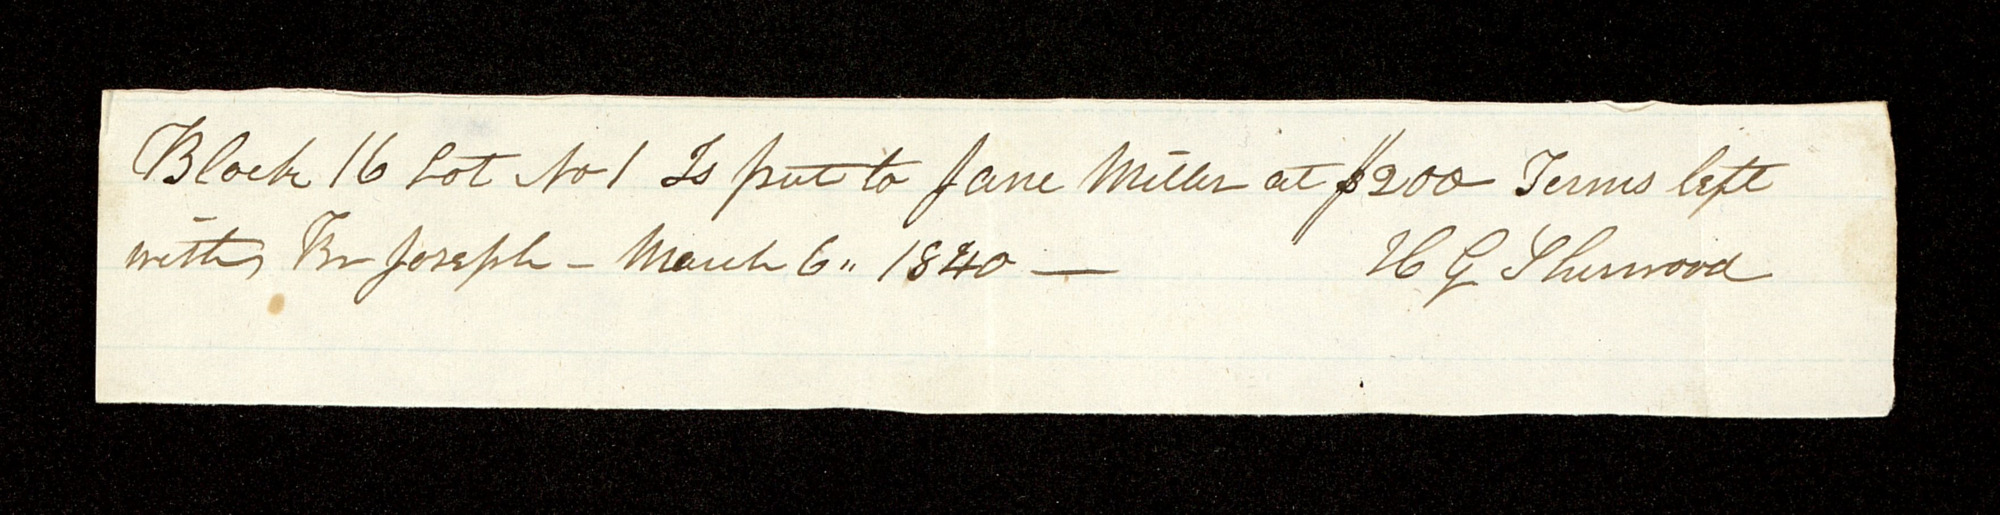 Block 16 Lot No 1 Is put to Jane Miller at $200 Terms left
with Br Joseph – March 6,, 1840 — H G Sherwood